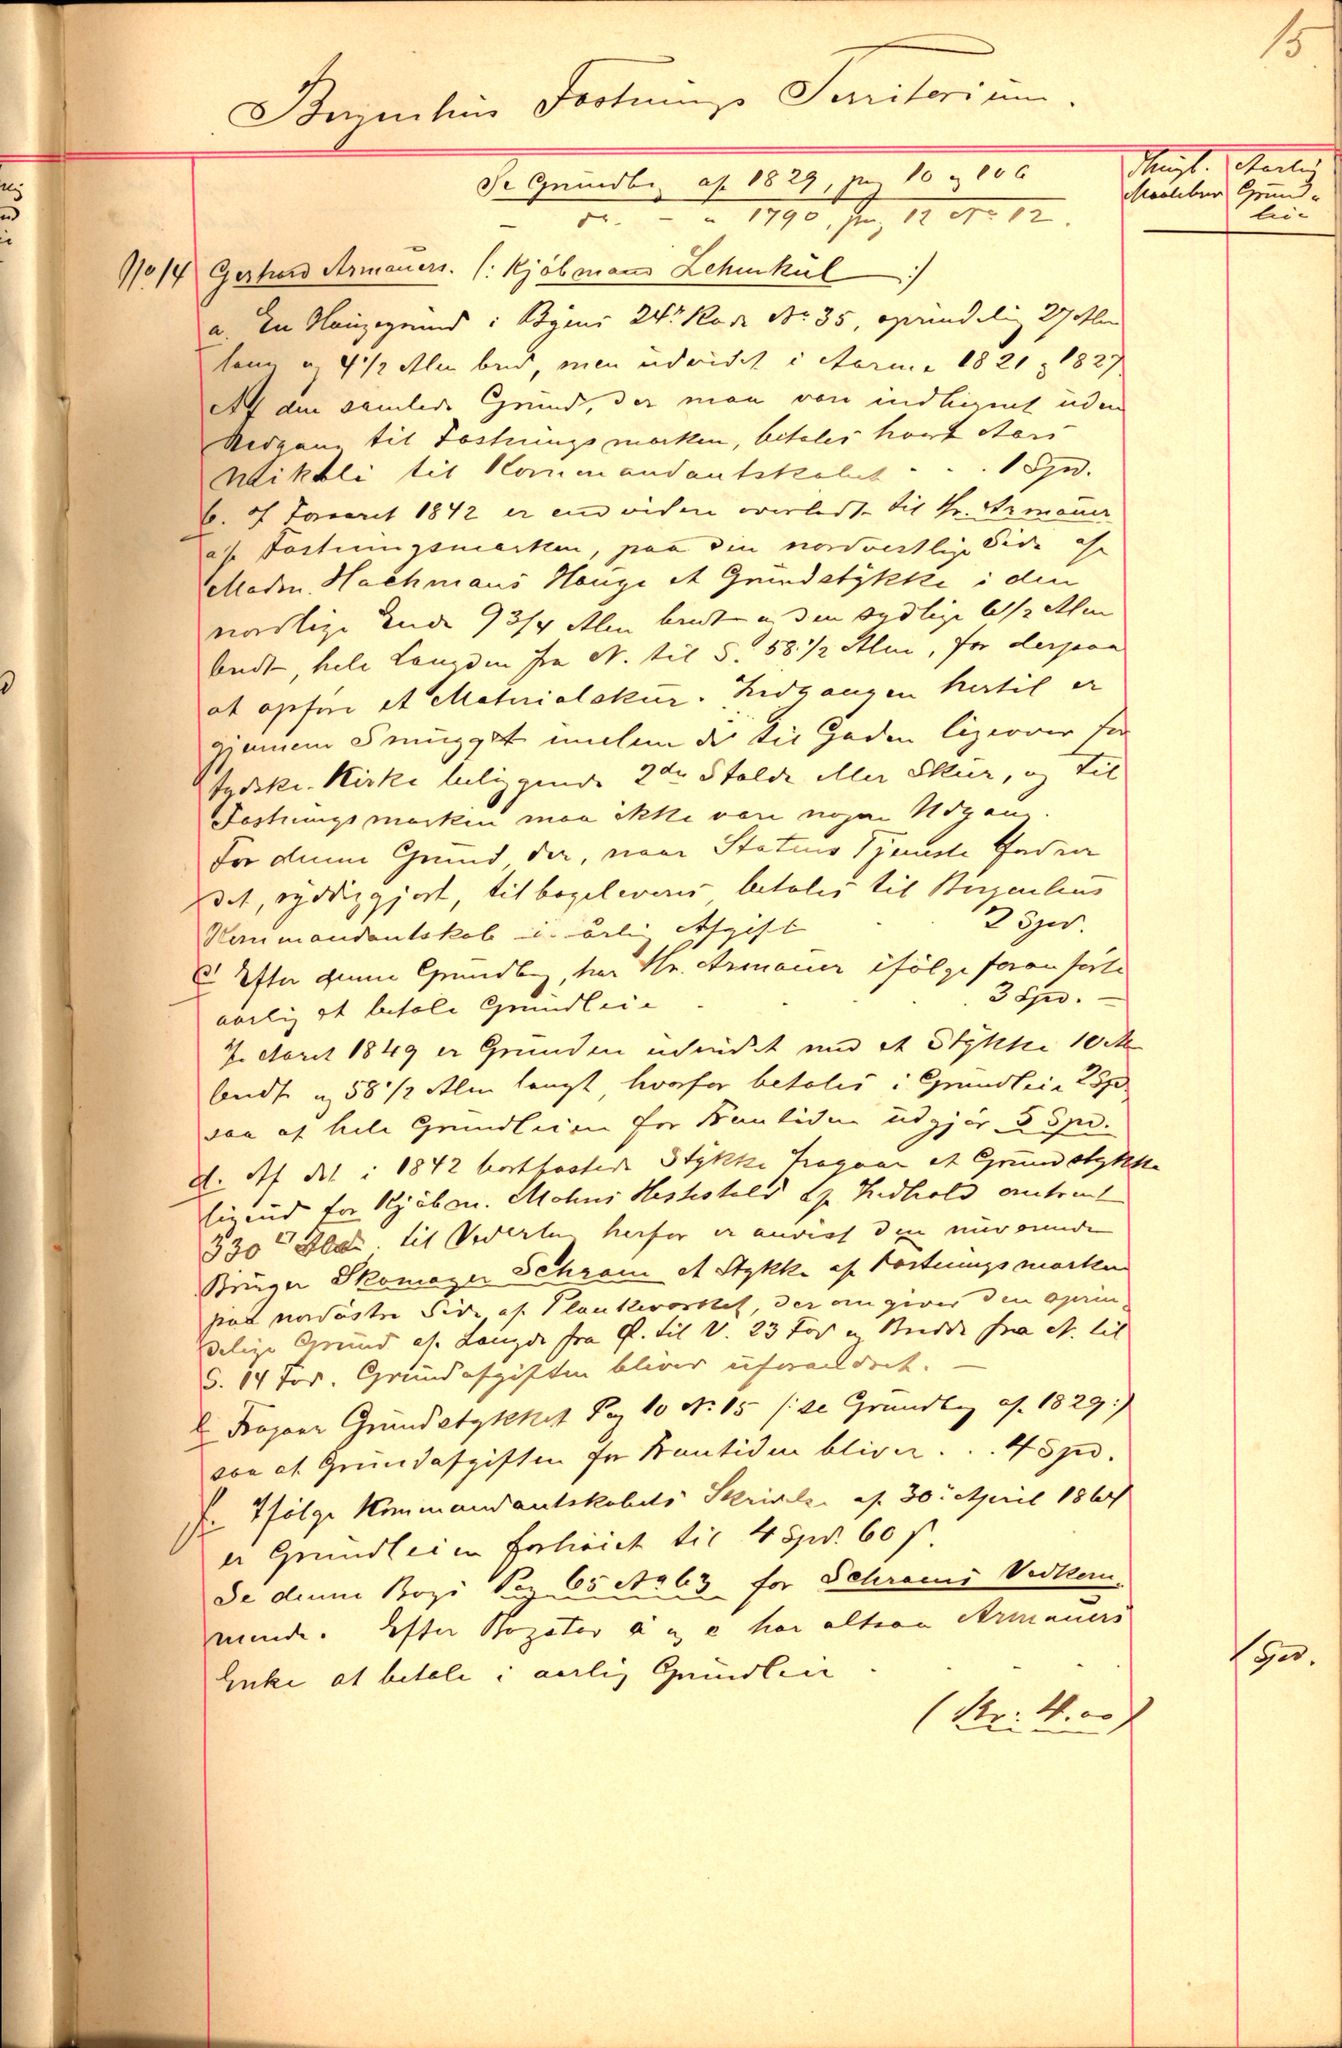 15
Bergenhus Fæstnings Territorium.
Se Grundbog af 1829, pag 10 og 106
do. - " 1790, pag 12 No 12.
Thingl. Maalebrev
Aarlig Grundleie
No 14 Gerhard Armauers. (: Kjöbmand Lehmkül :)
a. En Haugegrund i Byens 24de Rode No 35, oprindelig 27 Alen
lang og 4 1/2 Alen bred, men udvidet i Aarene 1821 og 1827
Af den samlede Grund, der maa være indhegnet uden
Nedgang til Fæstningsmarken, betales hvert Aars
Mikkeli til Kommandantskabet - - . 1 Spd.
b. I Foraaret 1842 er end videre overladt til Hr. Armauer
af Fæstningsmarken, paa den nordvestlige Side af
Madm. Hachmans Hauge et Grundstykke i den
nordlige Ende 9 3/4 Alen bredt og den sydlige 6 1/2 Alen
bredt, hele Længden fra N. til S. 58 1/2 Alen, for derpaa
at opføre et Materialskur. Indgangen hertil er
gjennem Smugget imellem de til Gaden ligeover for
tydske Kirke beliggende 2de Stalde eller Skur, og til
Fæstningsmarken maa ikke være nogen Udgang.
For denne Grund, der, naar Statens Tjeneste fordrer
det, ryddiggjort, tilbageleveres betales til Bergenhus
Kommandantskab i årlig Afgift 2 Spd.
c. Efter denne Grundbog, har Hr. Armauer ifölge foranförte
aarlig at betale Grundleie . . . 3 Spd. —
I Aaret 1849 er Grunden udvidet med et Stykke 10 Al
bredt og 58 1/2 Alen langt, hvorfor betales i Grundleie 2 Spd
saa at hele Grundleien for Fremtiden udgjör 5 Spd.
d. Af det i 1842 bortfæstede Stykke fragaar et Grundstykke
ligeud for Kjöbm. Mohns Hestestald af Indhold omtrent
330 □ Alen. til Vederlag herfor er anvist den nuværende
Bruger Skomager Schram et Stykke af Fæstningsmarken
paa nordöstre Side af Plankeværket, der omgiver den oprin-
delige Grund af Længde fra Ø. til V. 23 Fod og Bredde fra N. til
S. 14 Fod. Grundafgiften bliver uforandret. —
e. Fragaar Grundstykket Pag 10 No 15 (: se Grundbog af 1829 :)
saa at Grundafgiften for Fremtiden bliver . . . 4 Spd.
f. Ifölge Kommandantskabets Skrivelse af 30. April 1864
er Grundleien forhöiet til 4 Spd. 60 s.
Se denne Bogs Pag 65 No 63 for Schrams Vedkom-
mende. Efter Bogstav a og e har altsaa Armauers
Enke at betale i aarlig Grundleie .
1 Spd.
(Kr: 4.00)